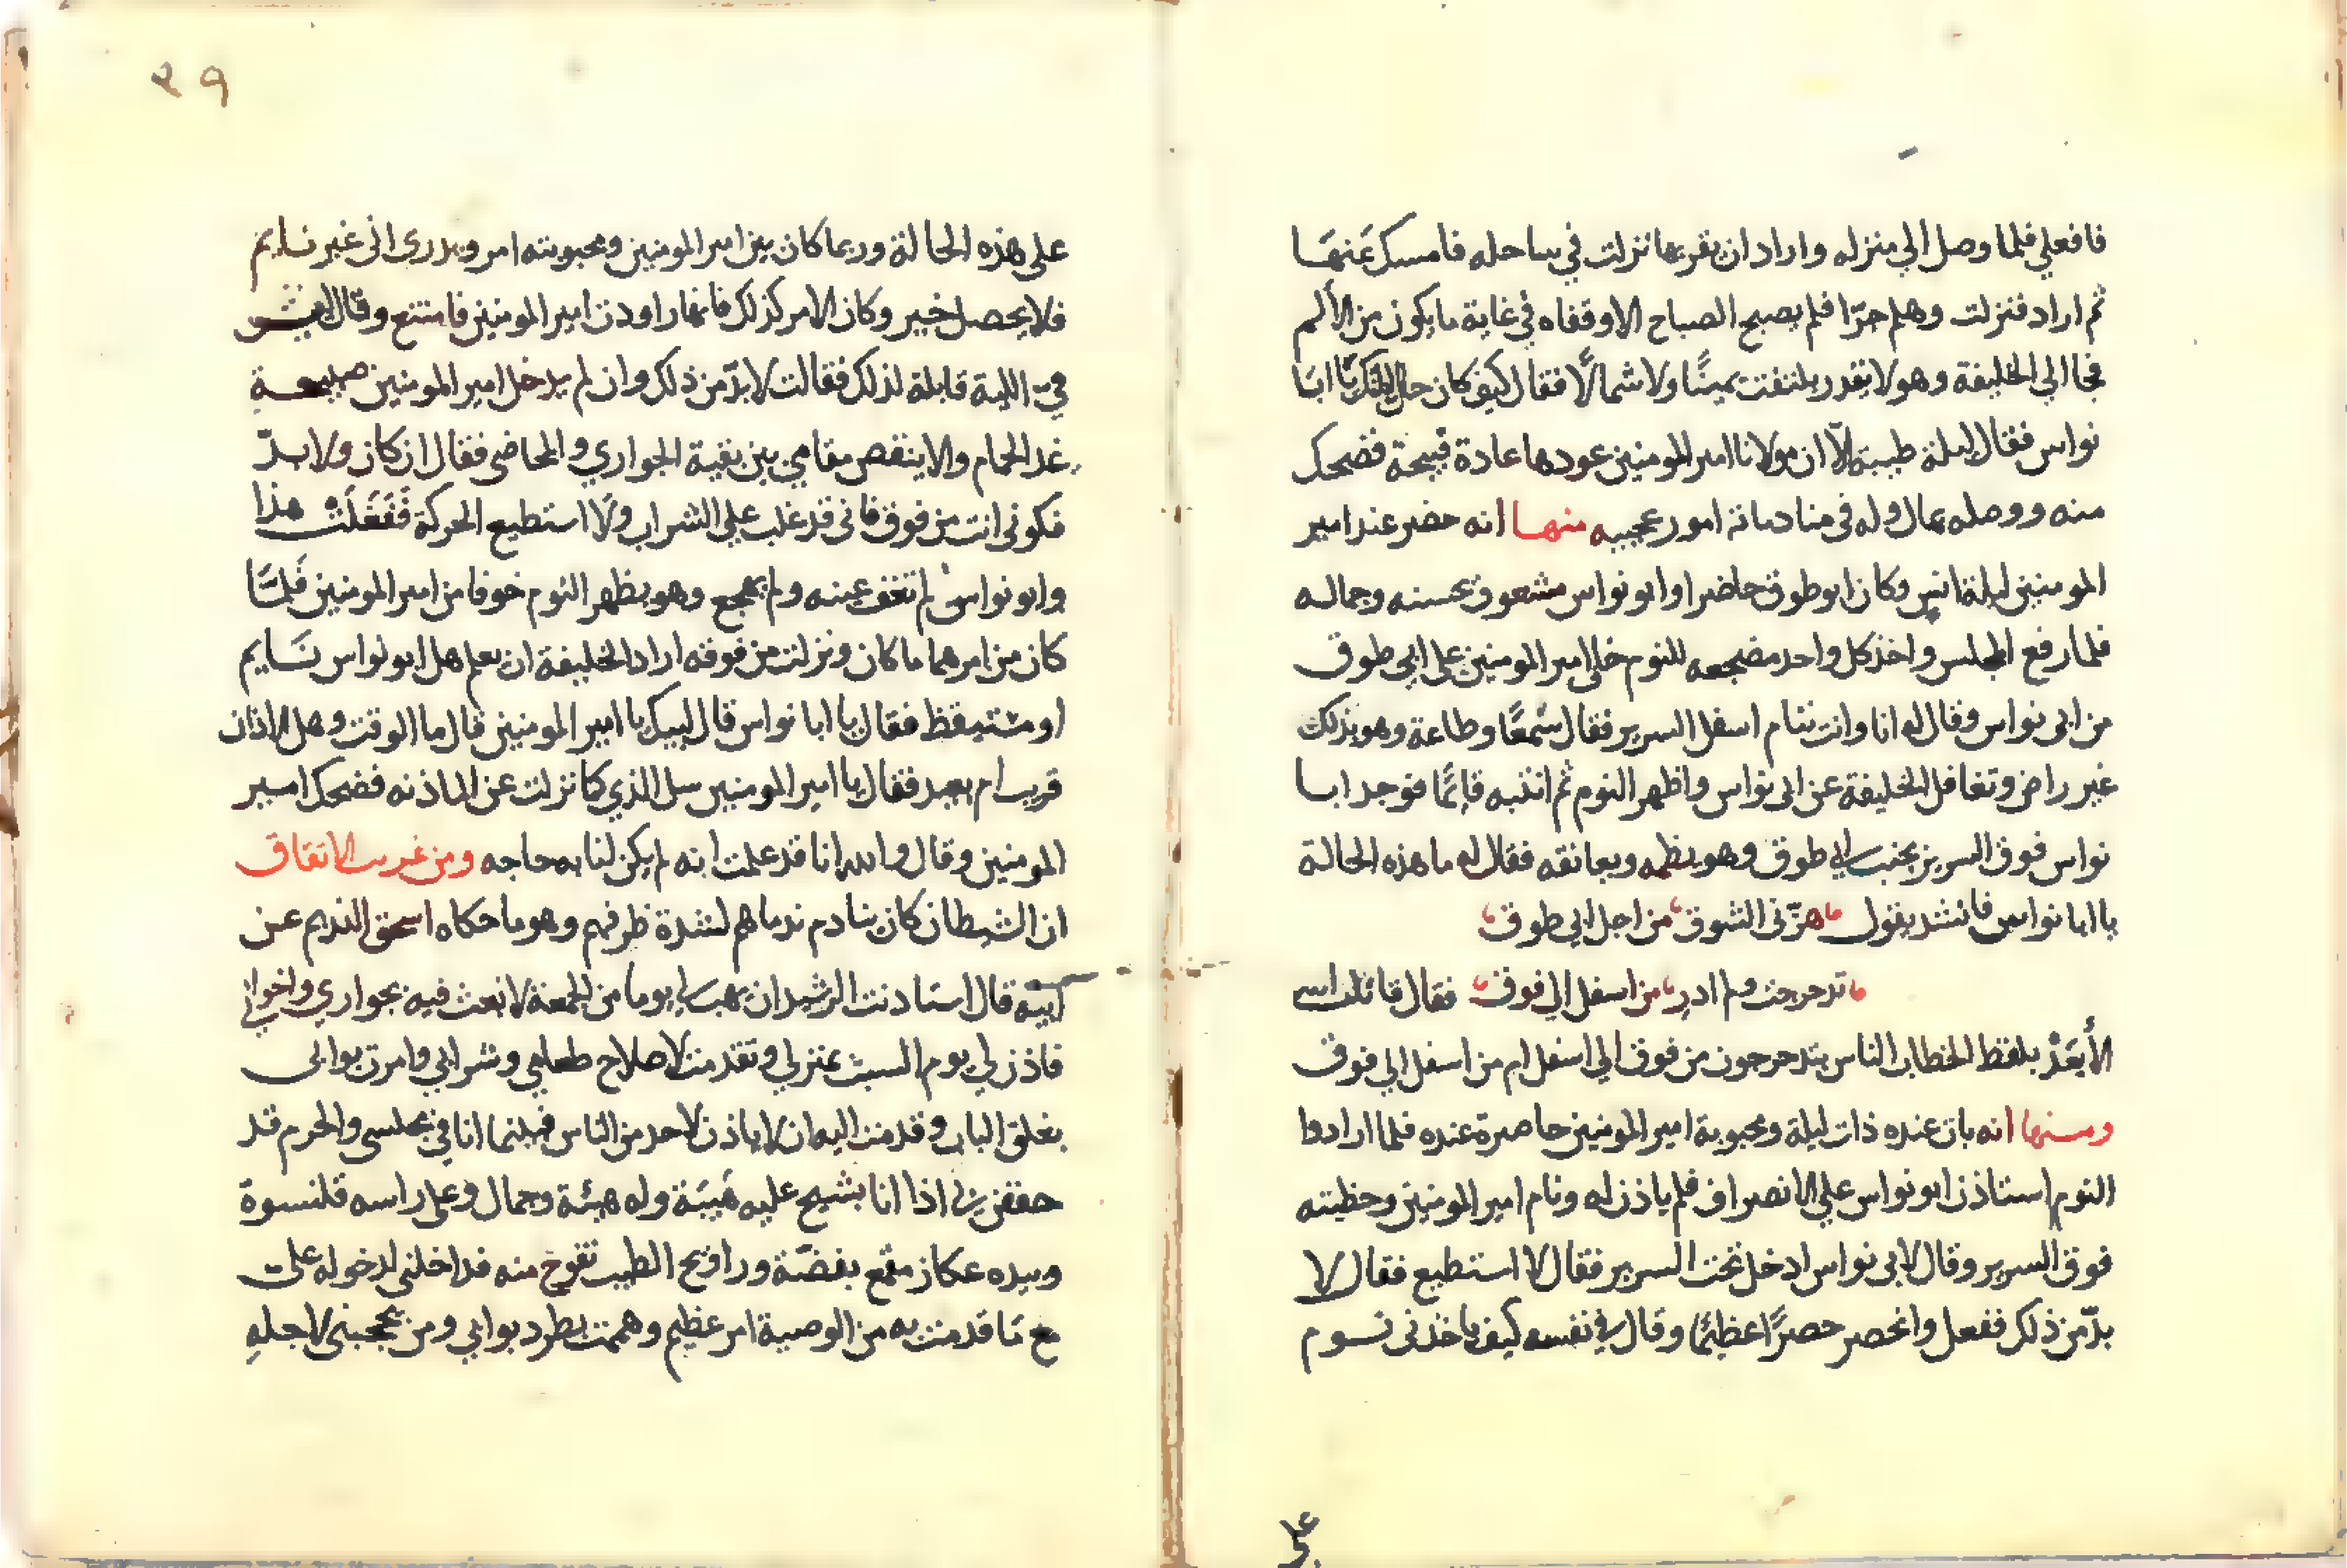 فافعلي فلما وصل الي منزله واراد ان يقربها نزلت في ساحله فامسك عنها
ثم اراد فنزلت وهلم جرّا فلم يصبح الصباح الا وقفاه في غاية ما يكون من الألم
فجا الي الخليفة وهو لا يقدر يلتفت يمينًا ولا شمالًا فقال كيف كان حال ليلتك يا ابا
نواس فقال ليلة طيبة الّا ان مولانا امير المومنين عودها عادة قبيحة فضحك
منه ووصله بمال وله في منادماته امور عجيبه منها انه حضر عند امير
المومنين ليلة انس وكان ابو طوق حاضرا وابو نواس مشعوق بحسنه وجماله
فلما رفع المجلس واخذ كل واحد مضجعه للنوم خلي امير المومنين علي ابي طوق
من ابي نواس وقال له انا وانت ننام اسفل السرير فقال سمعًا وطاعة وهو بذلك
غير راض وتغافل الخليفة عن ابي نواس واظهر النوم ثم انتبه قايمًا فوجد ابا
نواس فوق السرير بجنب ابي طوق وهو يظمه ويعانقه فقال له ما هذه الحالة
يا ابا نواس فانشد يقول هزّني الشوق من اجل ابي طوق
تدحرجت ولم ادرِ من اسفل الي فوق فقال قاتلك الله
الأبعَدْ بلفظ الخطاب الناس يتدحرجون من فوق الي اسفل ام من اسفل الي فوق
ومنها انه بات عنده ذات ليلة ومحبوبة امير المومنين حاضرة عنده فلما ارادوا
النوم استاذن ابو نواس علي الانصراف فلم ياذن له ونام امير المومنين وحظيته
فوق السرير وقال لابي نواس ادخل تحت السرير فقال لا استطيع فقال لا
بدّ من ذلك ففعل وانحصر حصرًا عظيمًا وقال في نفسه كيف ياخذني نوم
علي
٣٩
علي هذه الحالة وربما كان بين امير المومنين ومحبوبته امر ويدري اني غير نايم
فلا يحصل خير وكان الامر كذلك فانها راودت امير المومنين فامتنع وقال
في الليلة قابلة لذلك فقالت لا بدّ من ذلك وان لم يدخل امير المومنين صبيحة
غد الحمام والا ينقص مقامي بين بقية الجواري والمحاضي فقال ان كان ولا بدّ
فكوني انت من فوق فاني قد غلب علي الشراب ولا استطيع الحركة ففعلت هذا
وابو نواس لم تغف عينه ولم يهجع وهو يظهر النوم خوفا من امير المومنين فلمّا
كان من امرهما ما كان ونزلت من فوقه اراد الخليفة ان يعلم هل ابو نواس نايم
او مستيقظ فقال يا ابا نواس قال لبيك يا امير المومنين قال ما الوقت وهل الاذان
قريب ام بعيد فقال يا امير المومنين سل الذي كا نزلت عن الماذنه فضحك امير
المومنين وقال والله انا قد علمت انه لم يكن لنا به حاجه ومن غريب الاتفاق
ان الشيطان كان ينادم ندماهم لشدة ظرفهم وهو ما حكاه اسحق النديم عن
ابيه قال استاذنت الرشيد ان يهب لي يوما من الجمعة لانعث فيه بجواري واخواني
فاذن لي يوم السبت بمنزلي وتقدمت لاصلاح طعامي وشرابي وامرت بوابي
بغلق الباب وقدمت اليه ان لا ياذن لاحد من الناس فبينما انا في مجلسي والحرم قد
حففن بي اذا انا بشيخ عليه هيبَة وله هيئة وجمال وعلي راسه قلنسوة
وبيده عكاز مقمع بفضّة وروايح الطيب تفوح منه فداخلني لدخوله علي
مع ما قدمت به من الوصية امر عظيم وهممت بطرد بوابي ومن يحجبني لاجلهِ